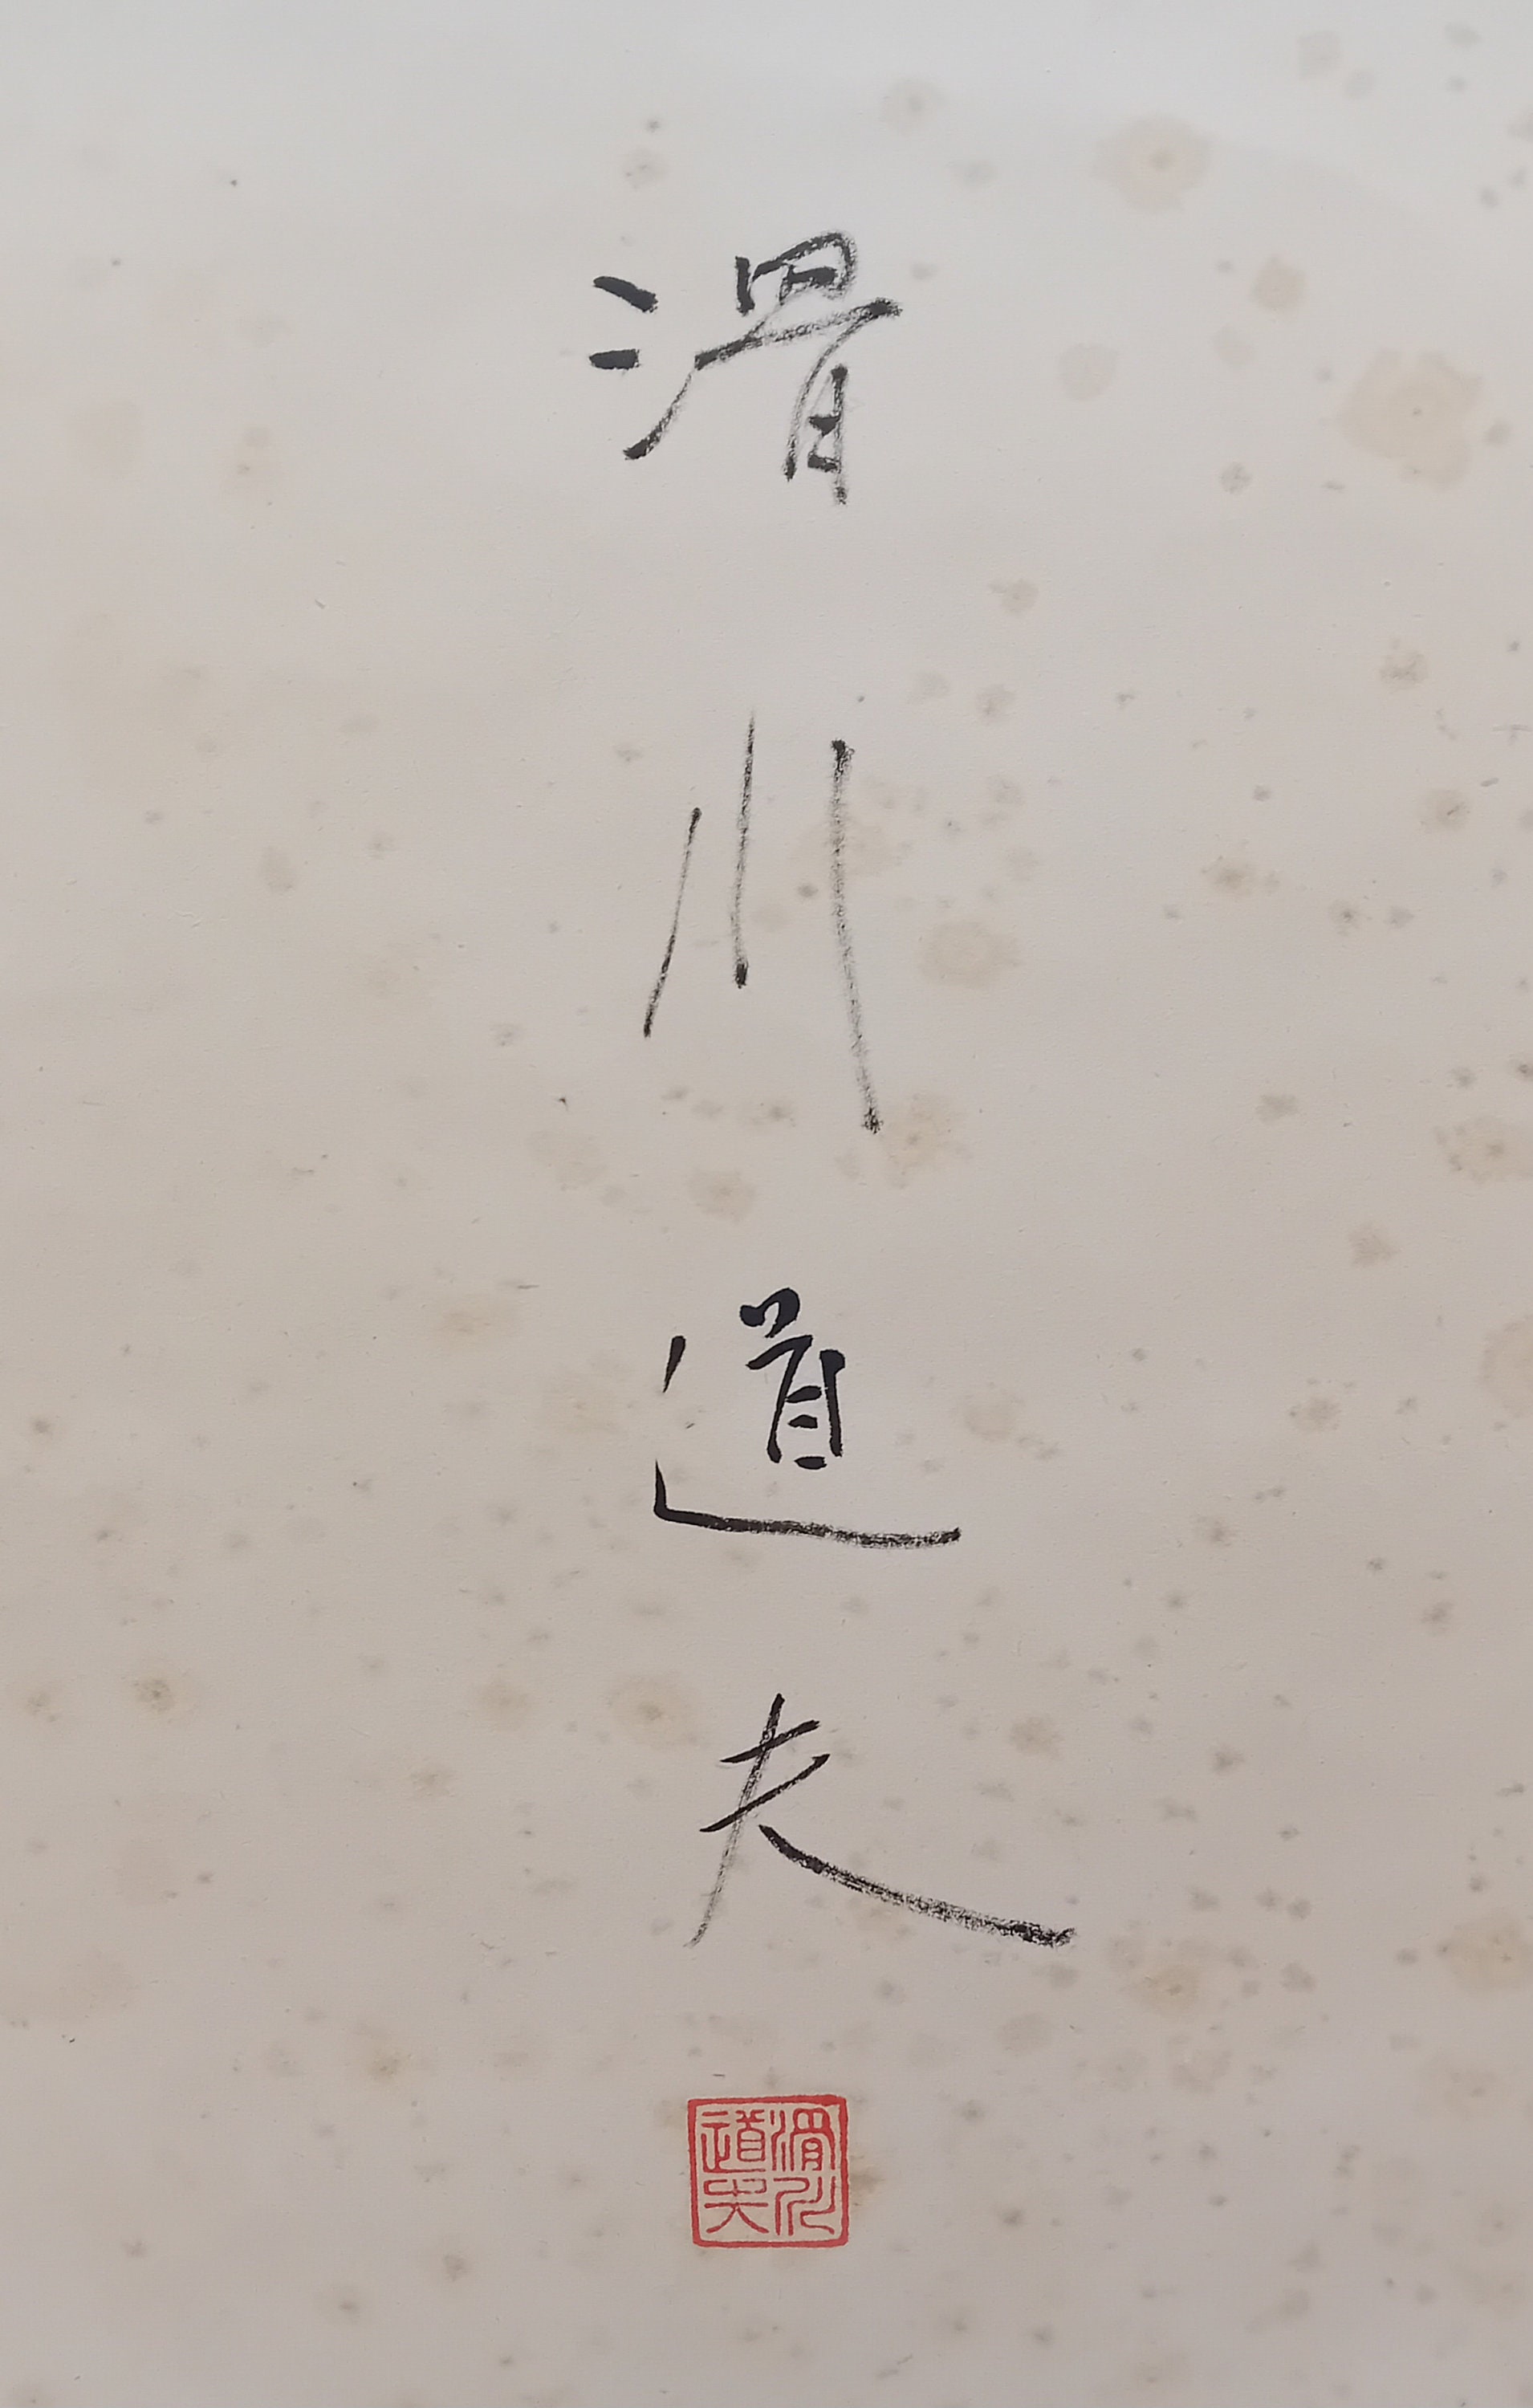 滑川道夫
滑川
道夫